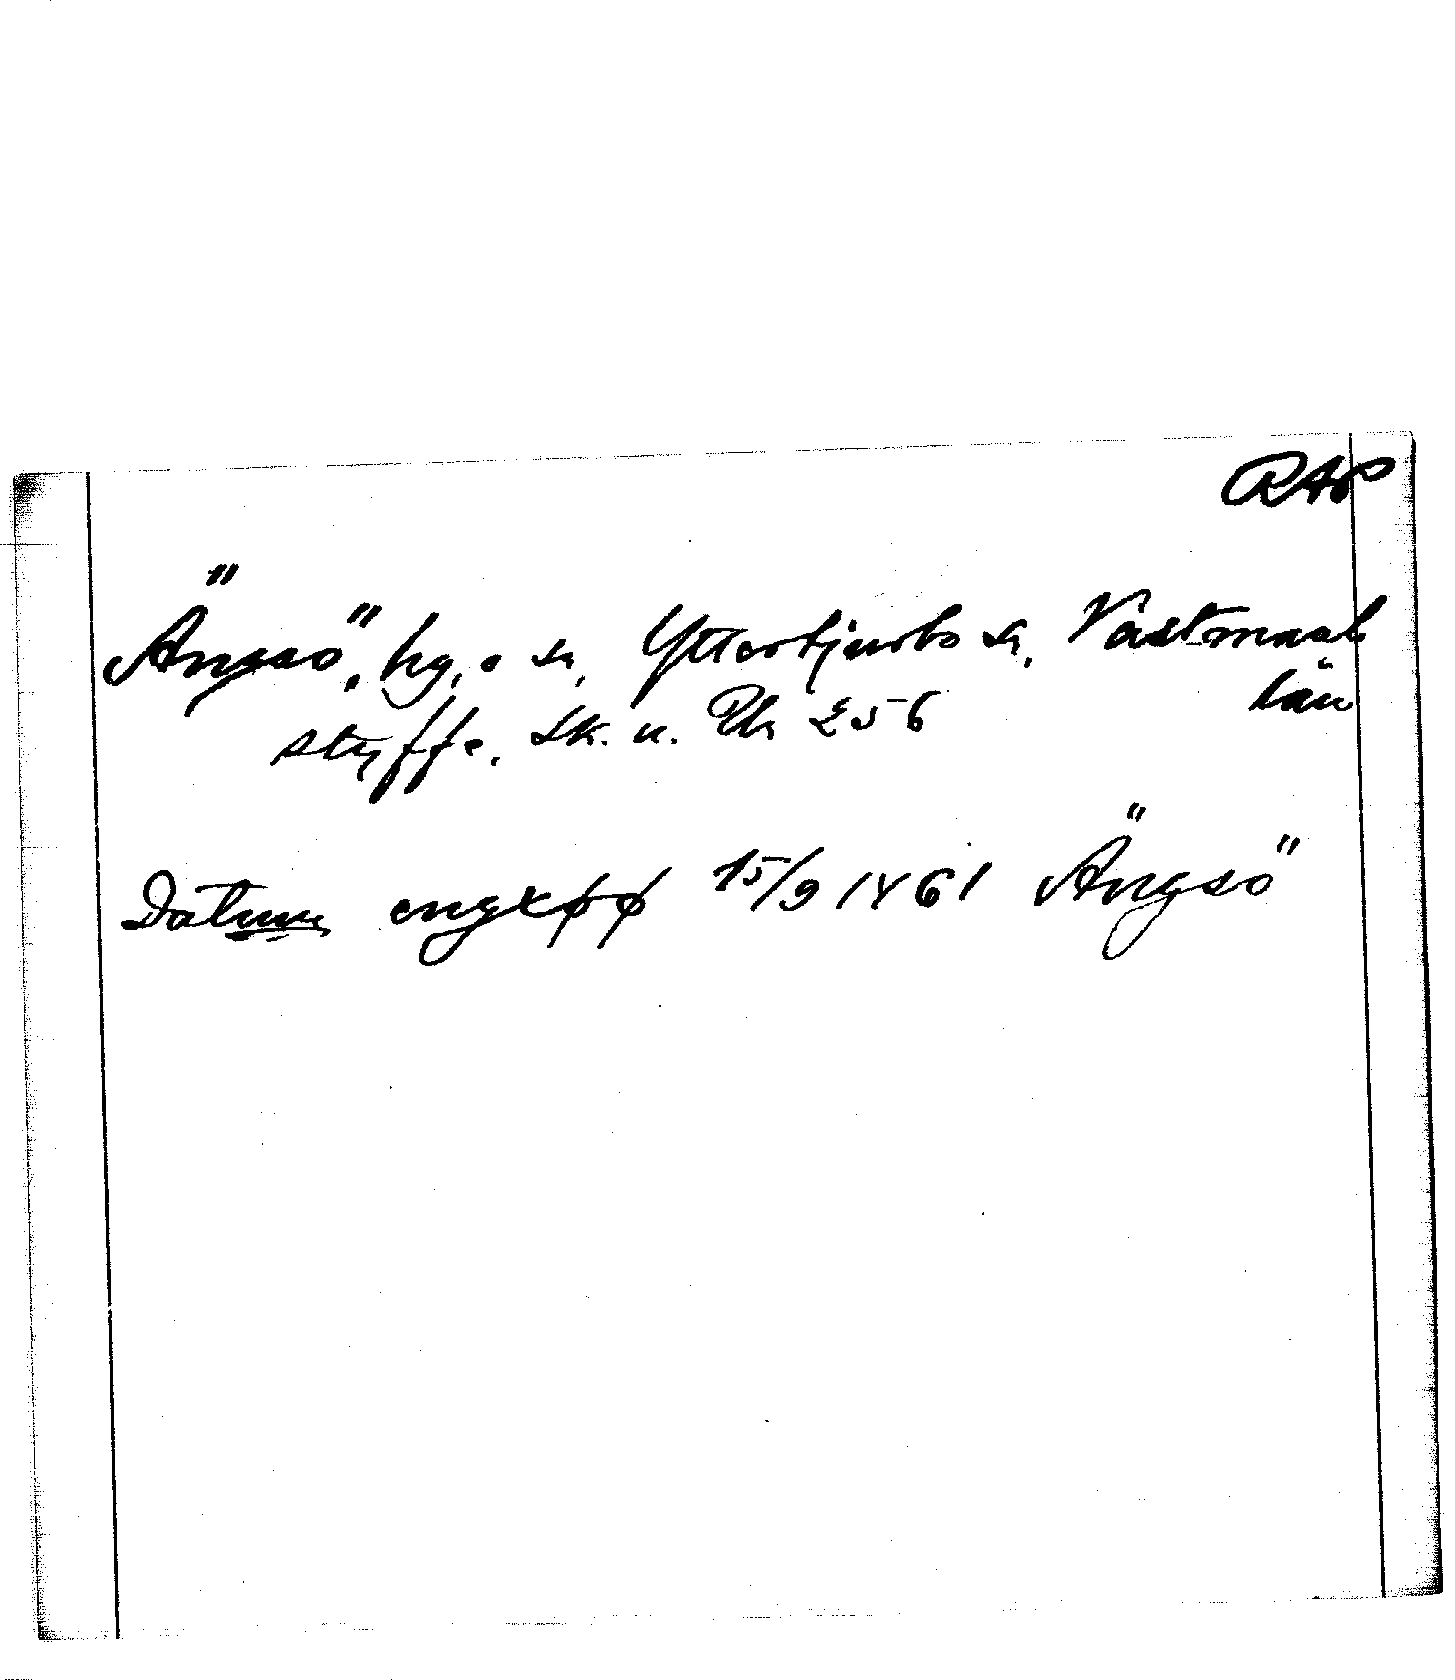 RAP
Ängsö, hg, o sn, Yttertjurbo sn, Västmanl
län
Styffe, Sk. u. Un 256
Datum engxøø 15/9 1461 Ängsö